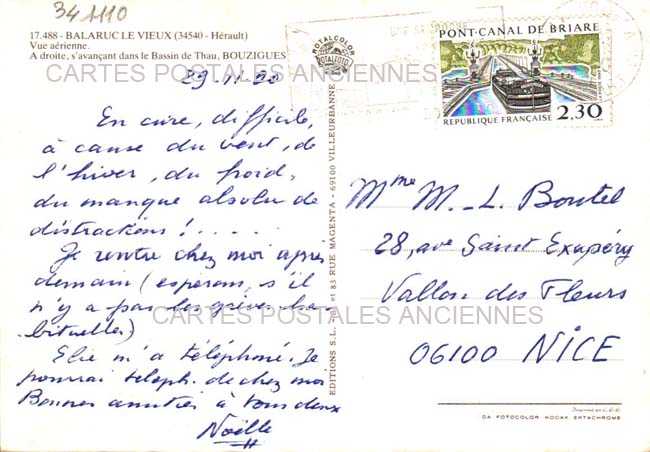 341110
17.488 - BALARUC LE VIEUX (34540 - Hérault)
Vue aérienne.
A droite, s'avançant dans le Bassin de Thau, BOUZIGUES
CARTES POSTALES ANCIENNES
29.11.90
En cure, difficile,
à cause du vent, de
l'hiver, du froid,
du manque absolu de
distractions!.....
Je rentre chez moi après
demain (espérons, s'il
n'y a pas les grèves ha-
bituelles)
Elie m'a téléphoné. Je
pourrai téleph. de chez moi
Bonnes amitiés à tous deux
Noëlle
ROTALCOLOR
ROTALFOTO
EDITIONS S.L. 81 et 83 RUE MAGENTA - 69100 VILLEURBANNE
PONT-CANAL DE BRIARE
REPUBLIQUE FRANÇAISE
2.30
Mme M.-L. Boutel
28, ave Saint Exupéry
Vallon des Fleurs
06100 NICE
CARTES POSTALES ANCIENNES
Imprimé en C.E.E.
DA FOTOCOLOR KODAK EKTACHROME